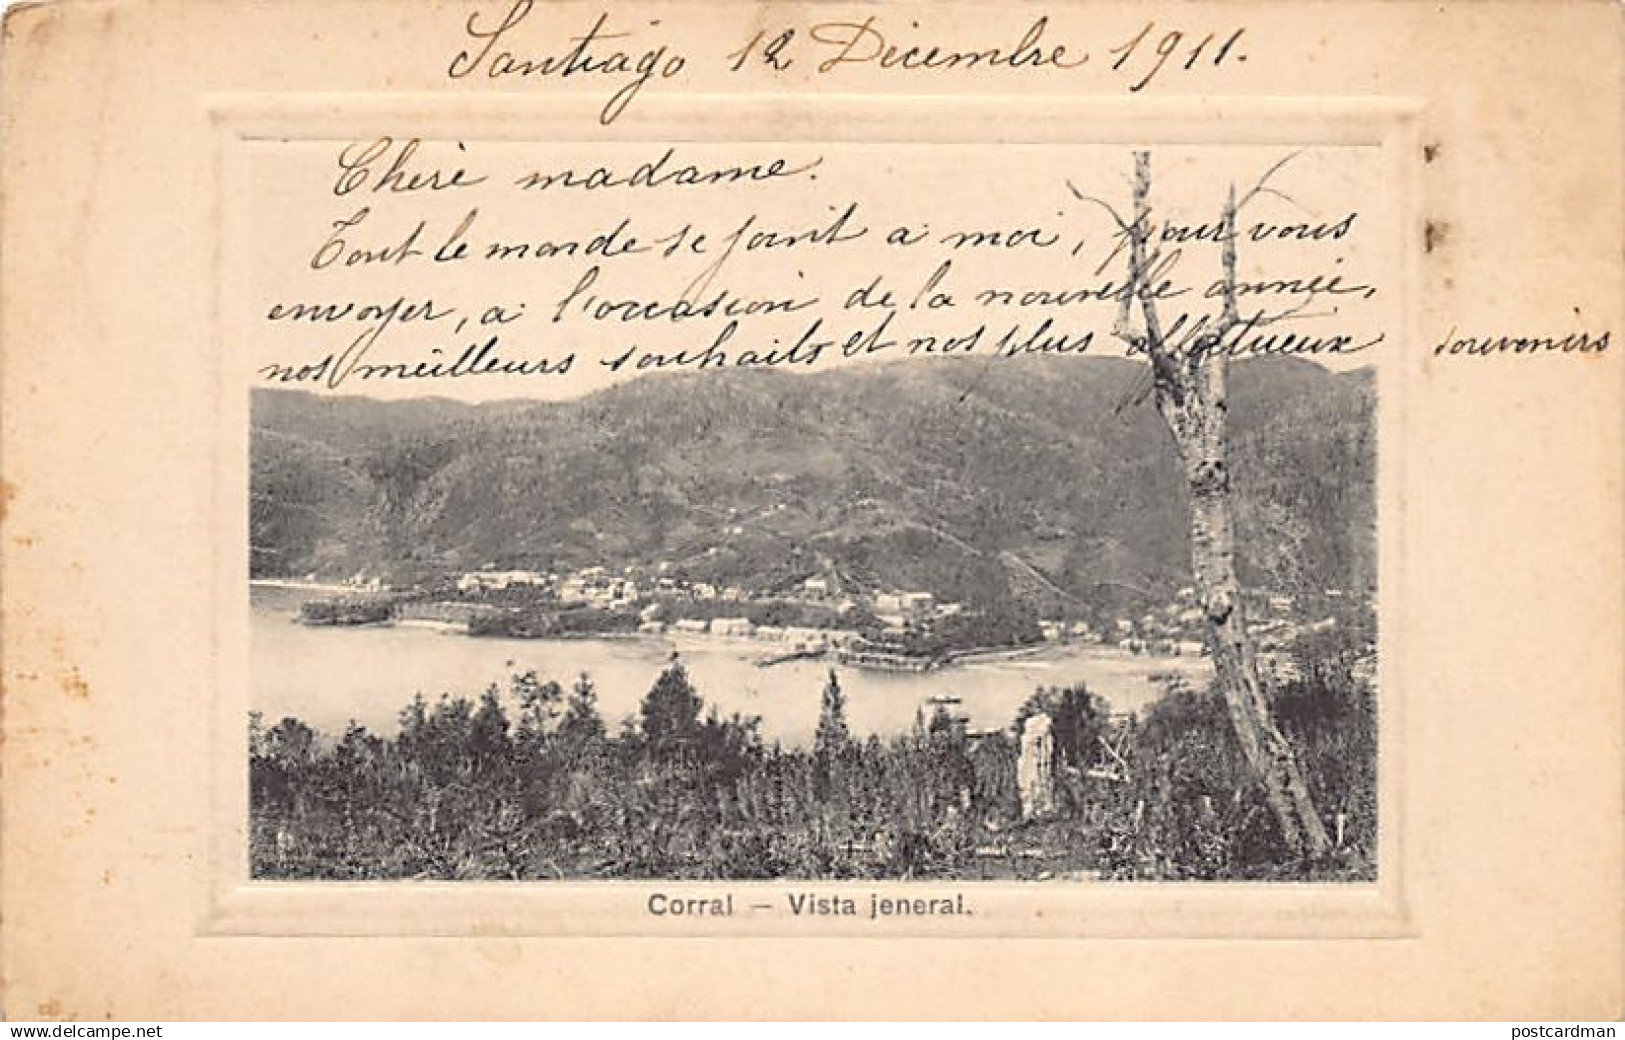 Santiago 12 Décembre 1911.
Chère madame.
Tout le monde se joint a moi, pour vous
envoyer, a l'occasion de la nouvelle année,
nos meilleurs souhaits et nos plus affectueux souvenirs
Corral — Vista jeneral.
www.delcampe.net
postcardman